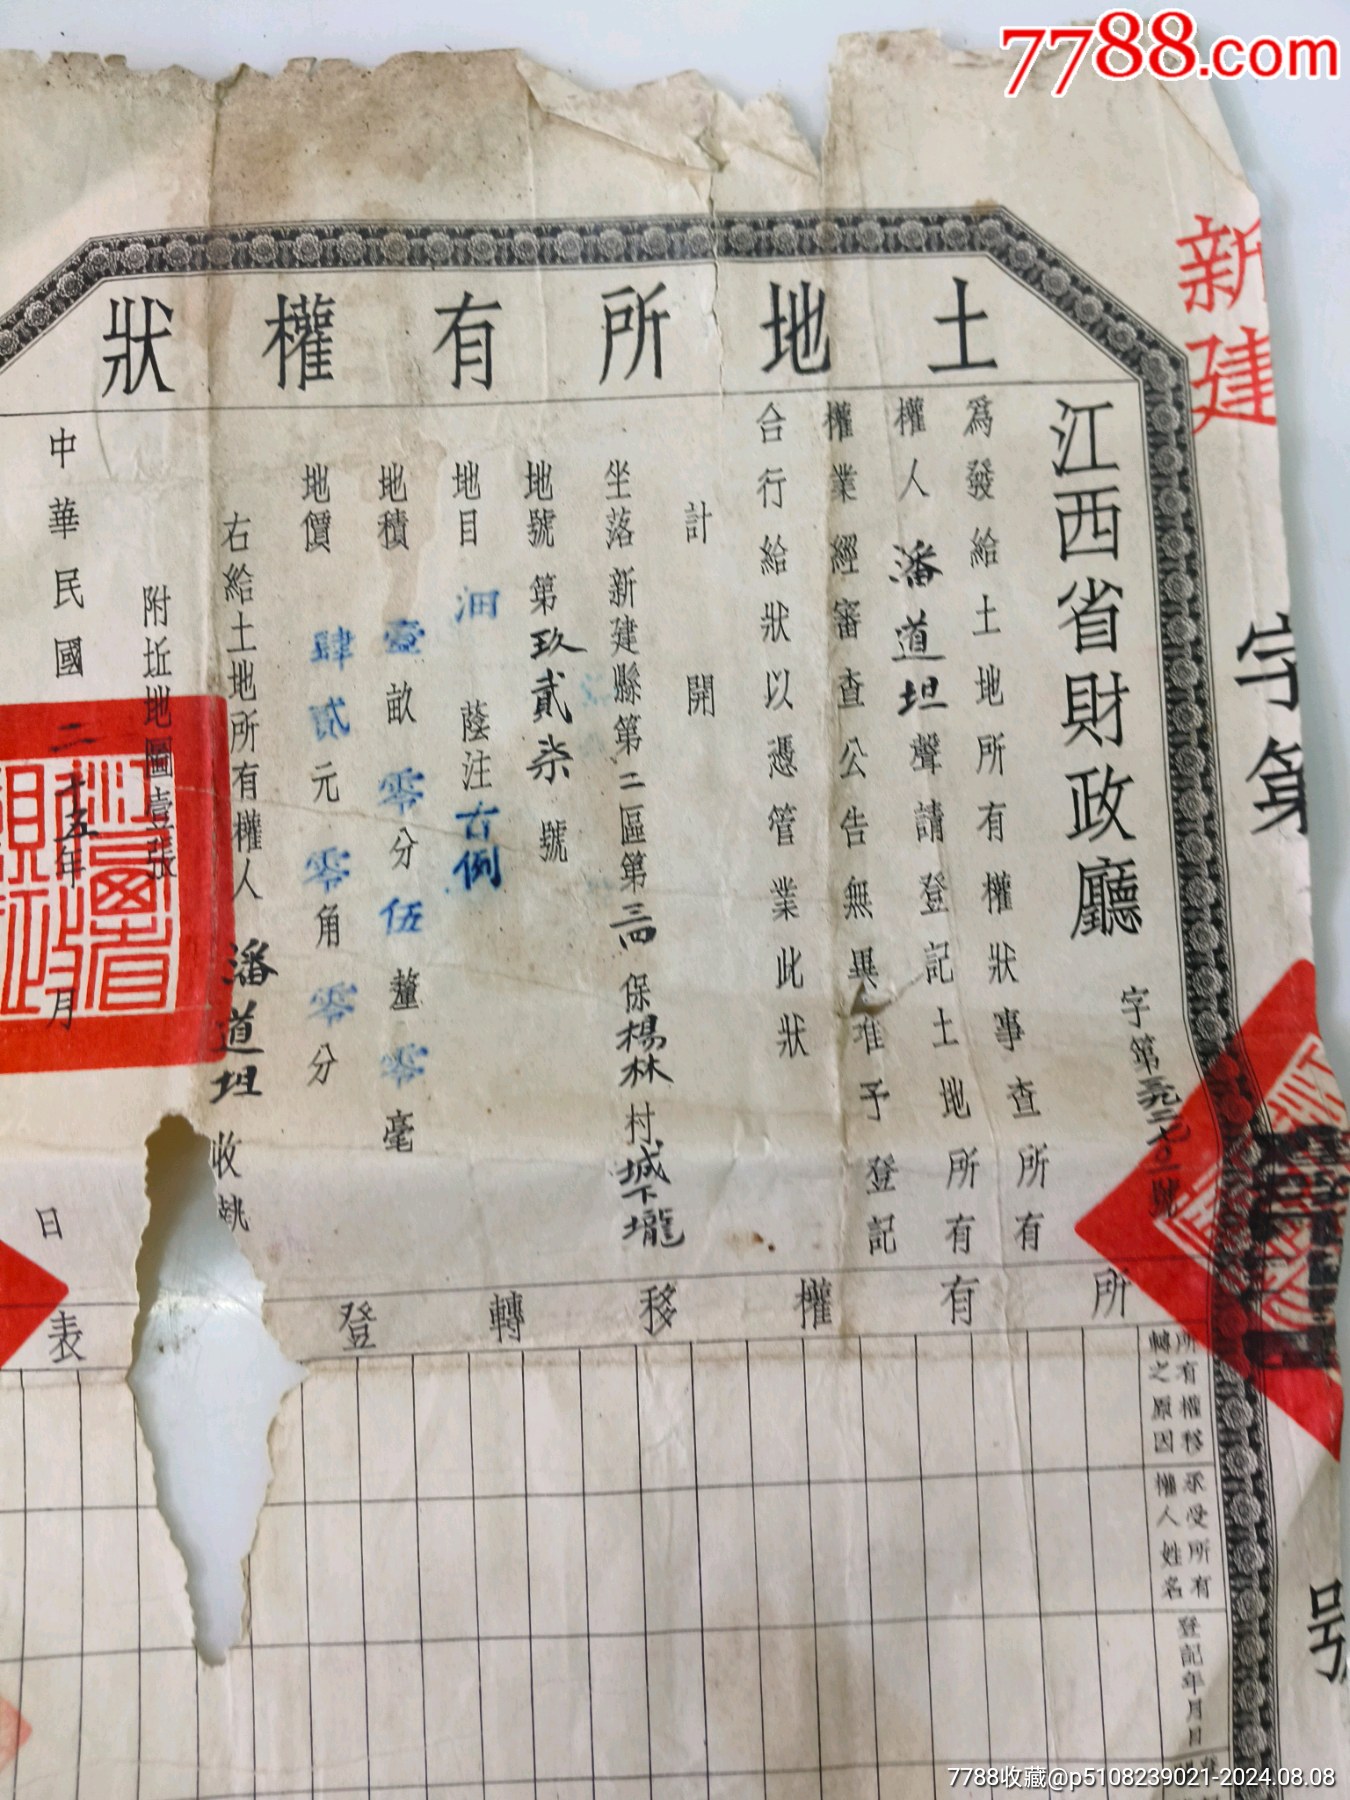 7788.com
新建
字第
號
土地所有權狀
江西省財政廳
字第
號
為發給土地所有權狀事查所有
權人潘道坦聲請登記土地所有
權業經審查公告無異准予登記
合行給狀以憑管業此狀
計開
坐落新建縣第二區第三四保楊林村城下壠
地號第玖貳柒號
地目 蔭注古例
地積壹畝零分伍釐零毫
地價肆貳元零角零分
右給土地所有權人潘道坦收執
附坵地圖壹張
中華民國二十五年月日
所有權移轉登表
所有權移轉之原因
承受所有權人姓名
登記年月日
7788收藏@p5108239021-2024.08.08